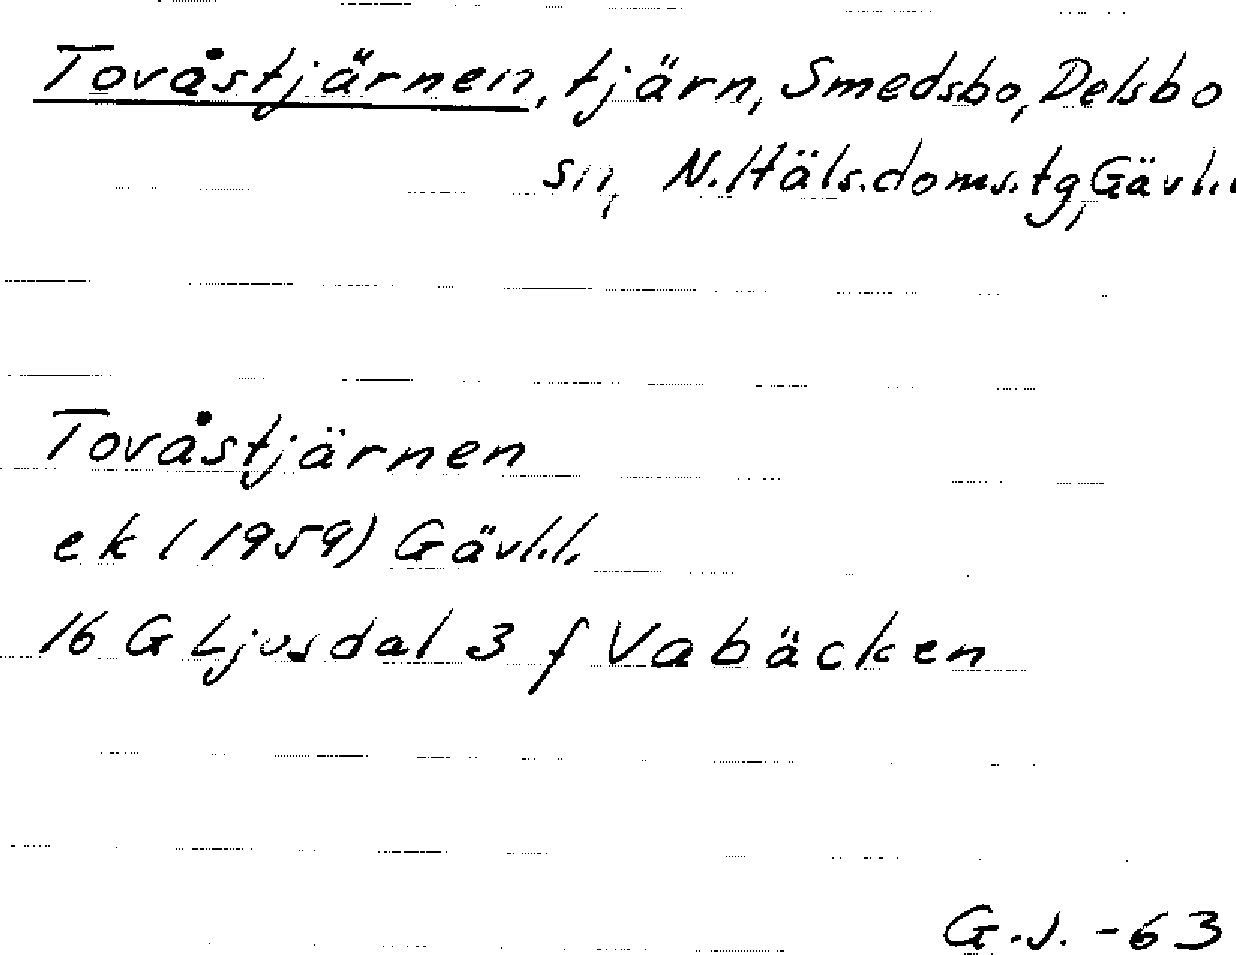 Tovåstjärnen, tjärn, Smedsbo, Delsbo
sn, N. Häls. doms. tg, Gävl. l.
Tovåstjärnen
ek (1959) Gävl. l.
16 G Ljusdal 3 f Vabäcken
G. J. - 63